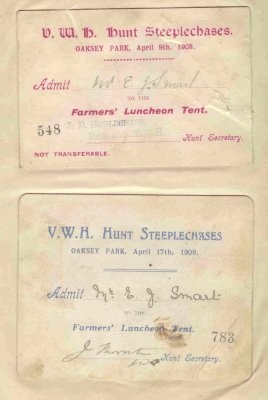 V. W. H. Hunt Steeplechases.
OAKSEY PARK, April 9th, 1908.
Admit Mr E J Smart
TO THE
Farmers' Luncheon Tent.
548
Hunt Secretary.
NOT TRANSFERABLE.
V.W.H. HUNT STEEPLECHASES
OAKSEY PARK, April 17th, 1909.
Admit Mr E. J. Smart
TO THE
Farmers' Luncheon Tent.
783
Hunt Secretary.